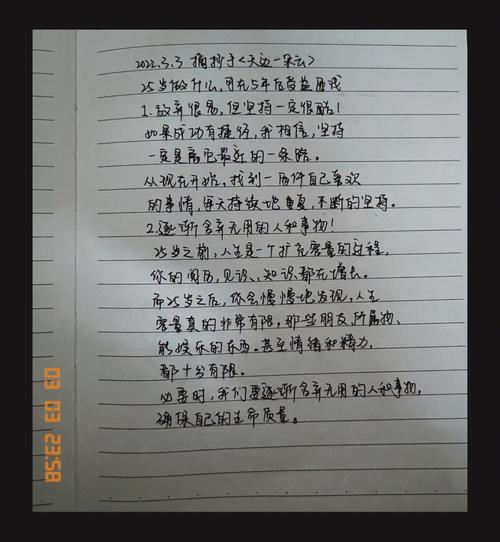 2022.3.3 摘抄于《天边一朵云》
25岁做什么,可在5年后受益匪浅
1.放弃很易,但坚持一定很酷!
如果成功有捷径,我相信,坚持
一定是离它最近的一条路。
从现在开始,找到一两件自己喜欢
的事情,每天持续地重复,不断的坚持。
2.逐渐舍弃无用的人和事物!
25岁之前,人生是一个扩充容量的过程,
你的阅历、见识、知识都在增长。
而25岁之后,你会慢慢地发现,人生
容量真的非常有限,那些朋友、所属物、
能娱乐的东西。甚至情绪和精力,
都十分有限。
必要时,我们要逐渐舍弃无用的人和事物,
确保自己的生命质量。
03 03 23:58